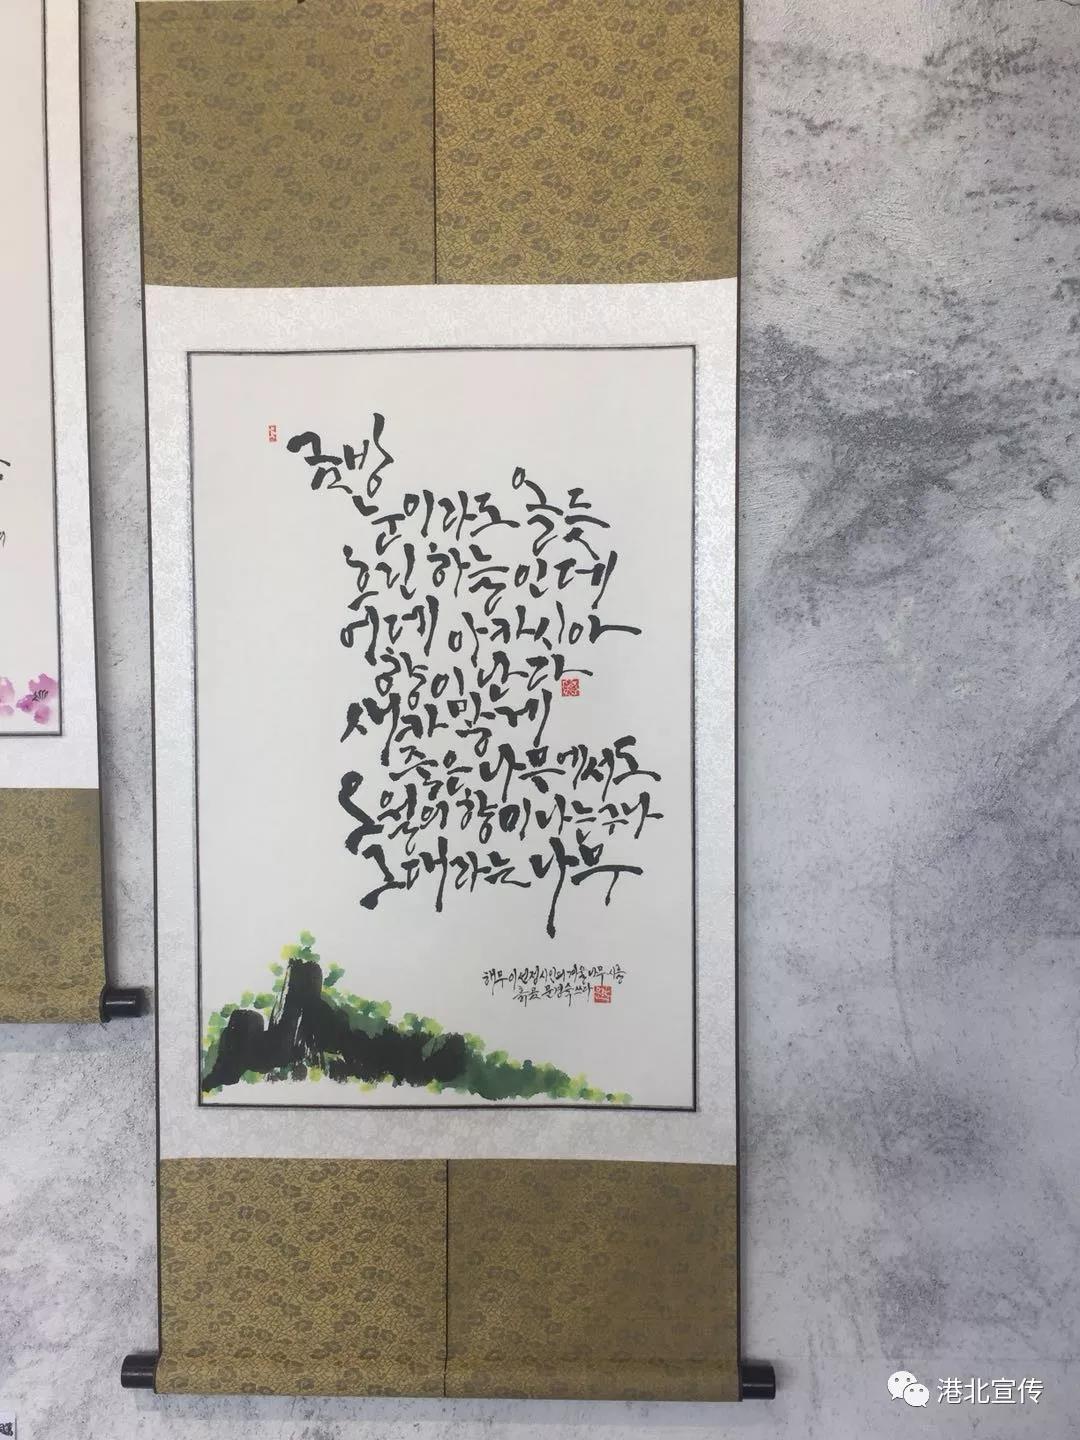 금방
눈이라도 올듯
흐린 하늘인데
어데 아카시아
향이 난다
새카맣게
죽은 나무에서도
오월의 향이 나는구나
그대라는 나무
해무 이선정시인의 겨울나무 시를
문경숙 쓰다
港北宣传